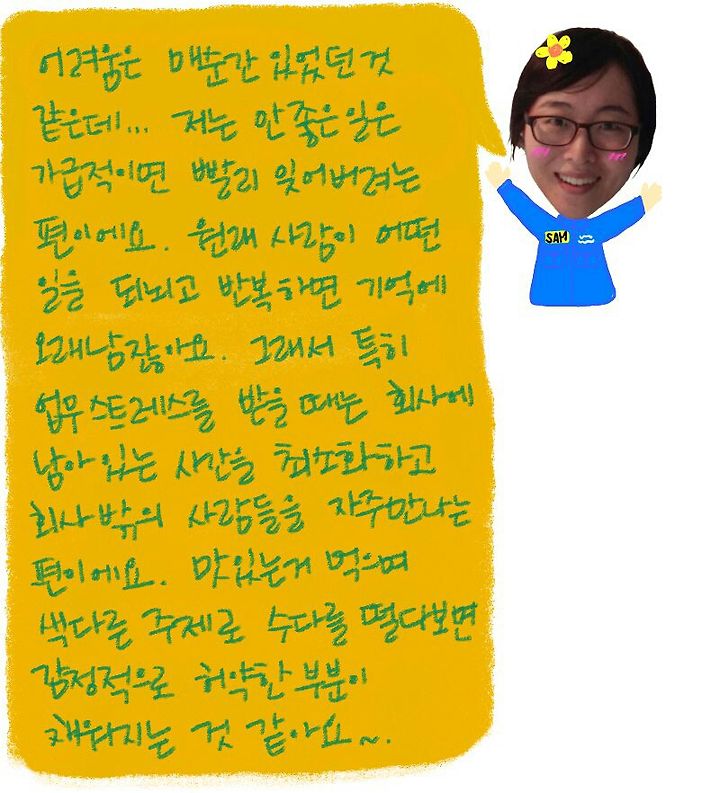 어려움은 매순간 있었던 것
같은데... 저는 안 좋은 일은
가급적이면 빨리 잊어버려는
편이에요. 원래 사람이 어떤
일을 되뇌고 반복하면 기억에
오래남잖아요. 그래서 특히
업무 스트레스를 받을 때는 회사에
남아 있는 시간을 최소화하고
회사밖의 사람들을 자주만나는
편이에요. 맛있는거 먹으며
색다른 주제로 수다를 떨다보면
감정적으로 허약한 부분이
채워지는 것 같아요~.
SAM